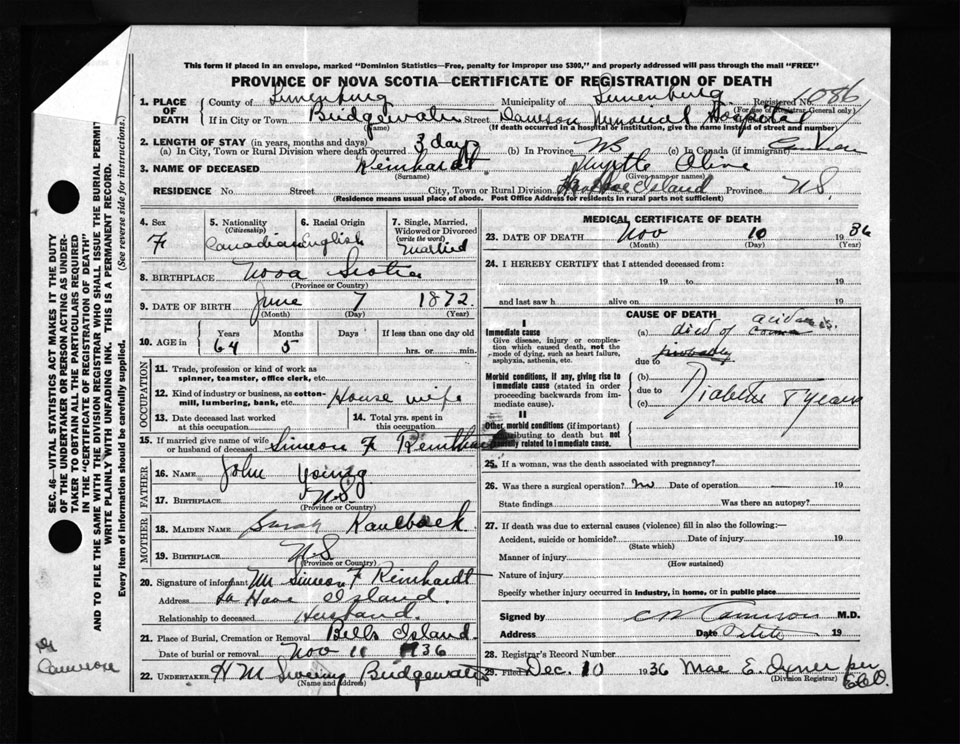 This form if placed in an envelope, marked "Dominion Statistics—Free, penalty for improper use $300," and properly addressed will pass through the mail "FREE"
PROVINCE OF NOVA SCOTIA—CERTIFICATE OF REGISTRATION OF DEATH
1. PLACE OF DEATH County of Lunenburg Municipality of Lunenburg Registered No. 1086
(For use of Registrar General only)
If in City or Town Bridgewater Street Dawson Memorial Hospital
(Name) (If death occurred in a hospital or institution, give the name instead of street and number)
2. LENGTH OF STAY (in years, months and days)
(a) In City, Town or Rural Division where death occurred 3 days (b) In Province NS (c) In Canada (if immigrant)
3. NAME OF DECEASED Reinhardt Myrtle Olive
(Surname) (Given name or names)
RESIDENCE No. Street City, Town or Rural Division LaHave Island Province NS
(Residence means usual place of abode. Post Office Address for residents in rural parts not sufficient)
4. Sex F
5. Nationality (Citizenship) Canadian
6. Racial Origin English
7. Single, Married, Widowed or Divorced (write the word) Married
8. BIRTHPLACE Nova Scotia
(Province or Country)
9. DATE OF BIRTH June 7 1872
(Month) (Day) (Year)
10. AGE in Years 64 Months 5 Days If less than one day old hrs. or min.
OCCUPATION
11. Trade, profession or kind of work as spinner, teamster, office clerk, etc.
12. Kind of industry or business, as cotton-mill, lumbering, bank, etc. House wife
13. Date deceased last worked at this occupation
14. Total yrs. spent in this occupation
15. If married give name of wife or husband of deceased Simeon F Reinhardt
FATHER
16. NAME John Young
17. BIRTHPLACE NS
(Province or Country)
MOTHER
18. MAIDEN NAME Sarah Kaulback
19. BIRTHPLACE NS
(Province or Country)
20. Signature of informant Mr Simeon F Reinhardt
Address La Have Island.
Relationship to deceased Husband.
21. Place of Burial, Cremation or Removal Bells Island.
Date of burial or removal Nov 11 1936
22. UNDERTAKER H M Sweeny Bridgewater
(Name and Address)
MEDICAL CERTIFICATE OF DEATH
23. DATE OF DEATH Nov 10 1936
(Month) (Day) (Year)
24. I HEREBY CERTIFY that I attended deceased from:
19 to 19
and last saw h alive on 19
CAUSE OF DEATH
I
Immediate cause
Give disease, injury or complication which caused death, not the mode of dying, such as heart failure, asphyxia, asthenia, etc.
(a) died of coma
due to probably
Morbid conditions, if any, giving rise to immediate cause (stated in order proceeding backwards from immediate cause).
(b)
due to Diabetes 7 years
(c)
II
Other morbid conditions (if important) contributing to death but not causally related to immediate cause.
25. If a woman, was the death associated with pregnancy?
26. Was there a surgical operation? No Date of operation 19
State findings Was there an autopsy?
27. If death was due to external causes (violence) fill in also the following:—
Accident, suicide or homicide? Date of injury 19
(State which)
Manner of injury
(How sustained)
Nature of injury
Specify whether injury occurred in industry, in home, or in public place
Signed by M.D.
Address Date 19
28. Registrar's Record Number
29. Filed Dec. 10 1936 Mae E. Oxner per
(Division Registrar)
SEC. 46—VITAL STATISTICS ACT MAKES IT THE DUTY
OF THE UNDERTAKER OR PERSON ACTING AS UNDER-
TAKER TO OBTAIN ALL THE PARTICULARS REQUIRED
IN THE "CERTIFICATE OF REGISTRATION OF DEATH"
AND TO FILE THE SAME WITH THE DIVISION REGISTRAR WHO SHALL ISSUE THE BURIAL PERMIT
WRITE PLAINLY WITH UNFADING INK. THIS IS A PERMANENT RECORD.
Every item of information should be carefully supplied. (See reverse side for instructions.)